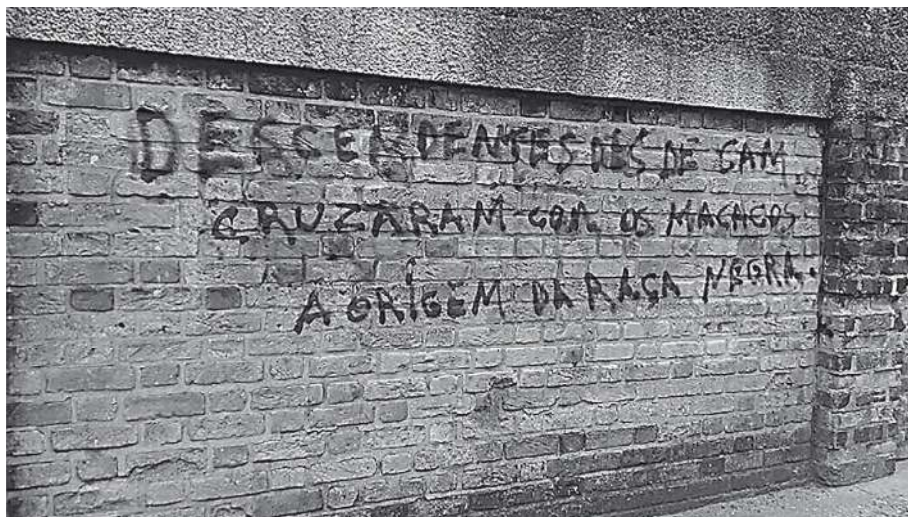 DESCENDENTES DES DE CAM.
CRUZARAM COM OS MACACOS
A ORÍGEM DA RAÇA NEGRA.